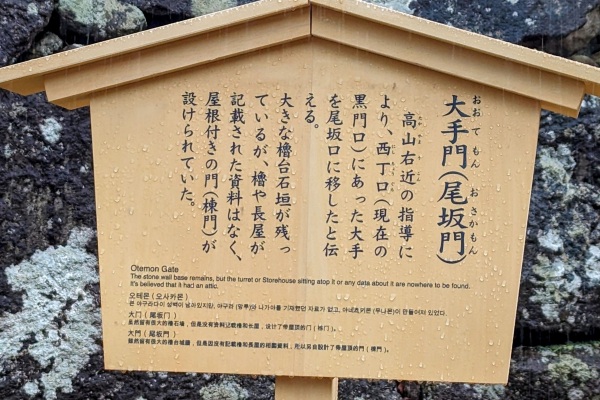 大手門(尾坂門)
おおてもん おさかもん
高山右近の指導に
より、西丁口(現在の
黒門口)にあった大手
を尾坂口に移したと伝
える。
大きな櫓台石垣が残っ
ているが、櫓や長屋が
記載された資料はなく、
屋根付きの門(棟門)が
設けられていた。
Otemon Gate
The stone wall base remains, but the turret or Storehouse sitting atop it or any data about it are nowhere to be found.
It's believed that it had an attic.
오테몬 (오사카몬)
큰 야구라다이 성벽이 남아있지만, 야구라 (망루)와 나가야를 기재했던 자료가 없고,
만들어져 있었다.
大门(尾坂门)
虽然留有很大的橹石城,但是没有资料记载橹和长屋,设计了带屋顶的门(栋门)。
大門(尾坂門)
雖然留有很大的櫓台城牆,但是因沒有記載櫓和長屋的相關資料,